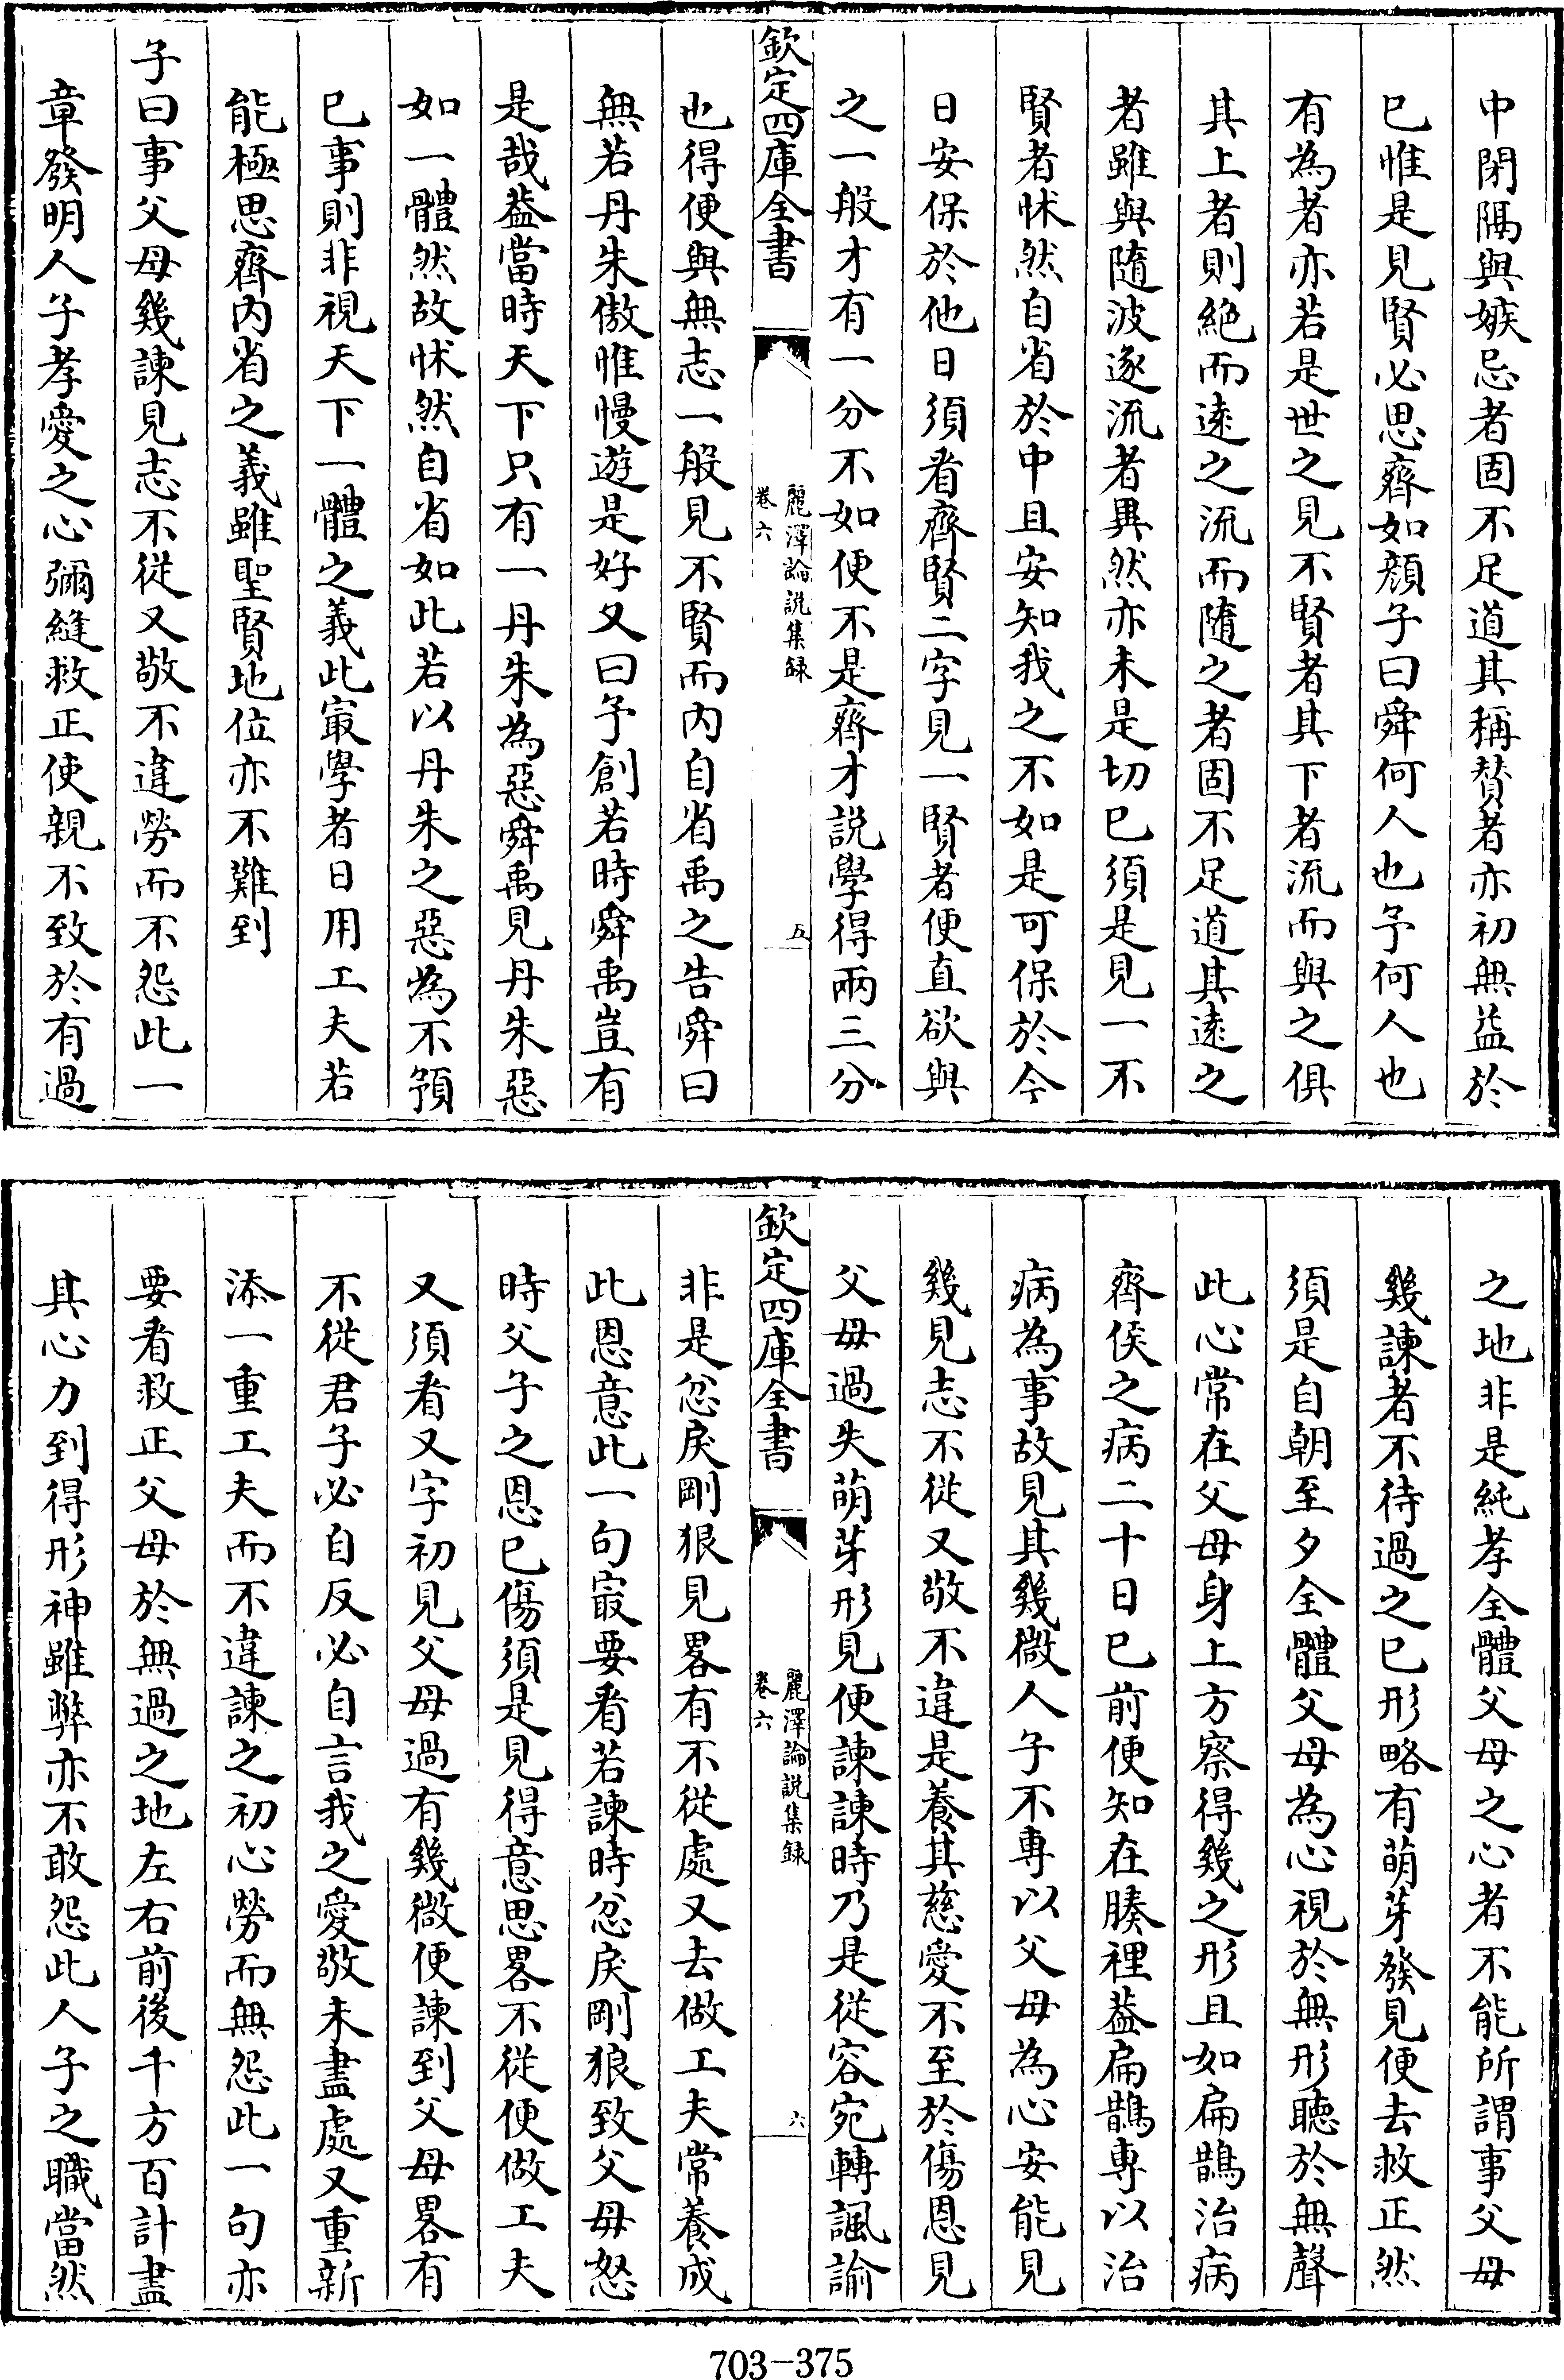 中閉隔與嫉忌者固不足道其稱賛者亦初無益於
已惟是見賢必思齊如顔子曰舜何人也予何人也
有為者亦若是世之見不賢者其下者流而與之俱
其上者則絶而逺之流而隨之者固不足道其逺之
者雖與隨波逐流者異然亦未是切已須是見一不
賢者怵然自省於中且安知我之不如是可保於今
日安保於他日須看齊賢二字見一賢者便直欲與
之一般才有一分不如便不是齊才説學得兩三分
欽定四庫全書
麗澤論説集録
卷六
五
也得便與無志一般見不賢而内自省禹之告舜曰
無若丹朱傲惟慢遊是好又曰予創若時舜禹豈有
是哉葢當時天下只有一丹朱為惡舜禹見丹朱惡
如一體然故怵然自省如此若以丹朱之惡為不預
已事則非視天下一體之義此㝡學者日用工夫若
能極思齊内省之義雖聖賢地位亦不難到
子曰事父母幾諫見志不從又敬不違勞而不怨此一
章發明人子孝愛之心彌縫救正使親不致於有過
之地非是純孝全體父母之心者不能所謂事父母
幾諫者不待過之已形略有萌芽發見便去救正然
須是自朝至夕全體父母為心視於無形聽於無聲
此心常在父母身上方察得幾之形且如扁鵲治病
齊侯之病二十日已前便知在腠裡葢扁鵲專以治
病為事故見其幾微人子不專以父母為心安能見
幾見志不從又敬不違是養其慈愛不至於傷恩見
父母過失萌芽形見便諫諫時乃是從容宛轉諷諭
欽定四庫全書
麗澤論説集録
卷六
六
非是忿戾剛狠見畧有不從處又去做工夫常養成
此恩意此一句㝡要看若諫時忿戾剛狼致父母怒
時父子之恩已傷須是見得意思畧不從便做工夫
又須看又字初見父母過有幾微便諫到父母畧有
不從君子必自反必自言我之愛敬未盡處又重新
添一重工夫而不違諫之初心勞而無怨此一句亦
要看救正父母於無過之地左右前後千方百計盡
其心力到得形神雖弊亦不敢怨此人子之職當然
703-375